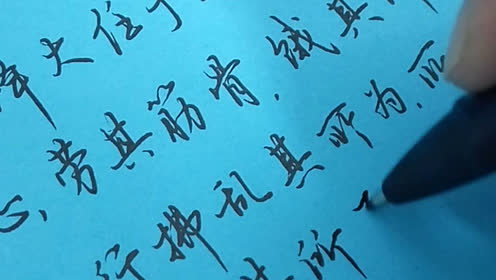 降大任于
劳其筋骨,饿其
行拂乱其所为,所
其所